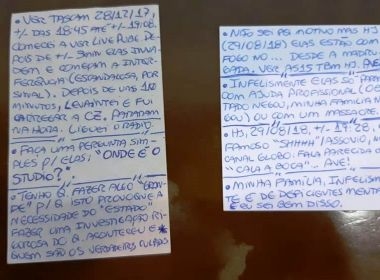 • VER TASCAM 28/12/17,
+/- DAS 18:45 ATÉ +/- 19:08.
COMECEI A VER LIVE PUBE. DE-
POIS DE +/- 5MIN ELAS INVA-
DEM E COMEÇAM A INTER-
FERÊNCIA (ESCANDALOSA, POR
SINAL). DEPOIS DE UNS 10
MINUTOS, LEVANTEI E FUI
CARREGAR A CZ. PARARAM
NA HORA. LIGUEI O RÁDIO.
• FAÇA UMA PERGUNTA SIM-
PLES P/ ELAS: "ONDE É O
STUDIO?".
• TENHO Q FAZER ALGO "GRAN-
DE" P/ Q ISTO PROVOQUE A
NECESSIDADE DO "ESTADO"
FAZER UMA INVESTIGAÇÃO RI-
GOROSA DO Q ACONTECEU E
QUEM SÃO OS VERDADEIROS CULPADOS
• NÃO SEI POR MOTIVO MAS HJ
(29/08/18) ELAS ESTÃO COM
FOGO NO ... DESDE A MADRU-
GADA. VER AS15 TBM HJ. AVE!
• INFELISMENTE ELAS SÓ PARAM
COM AJUDA PROFISSIONAL (O ES-
TADO NEGOU, MINHA FAMÍLIA NE-
GOU) OU COM UM MASSACRE.
• HJ, 29/08/18, +/- 19:28,
FAMOSO "SHHHH" ASSOVIO, NO
CANAL GLOBO. FALA PARECIDA C/
"CALA A BOCA"... AVE!
• MINHA FAMÍLIA, INFELISMEN-
TE É DE DEFICIENTES MENTAIS
E EU SEI BEM DISSO.